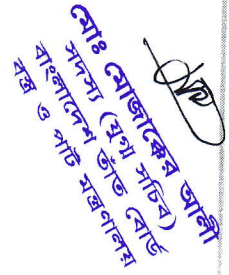 মোঃ মোজাক্কের আলী
সদস্য (যুগ্ম সচিব)
বাংলাদেশ তাঁত বোর্ড
বস্ত্র ও পাট মন্ত্রণালয়